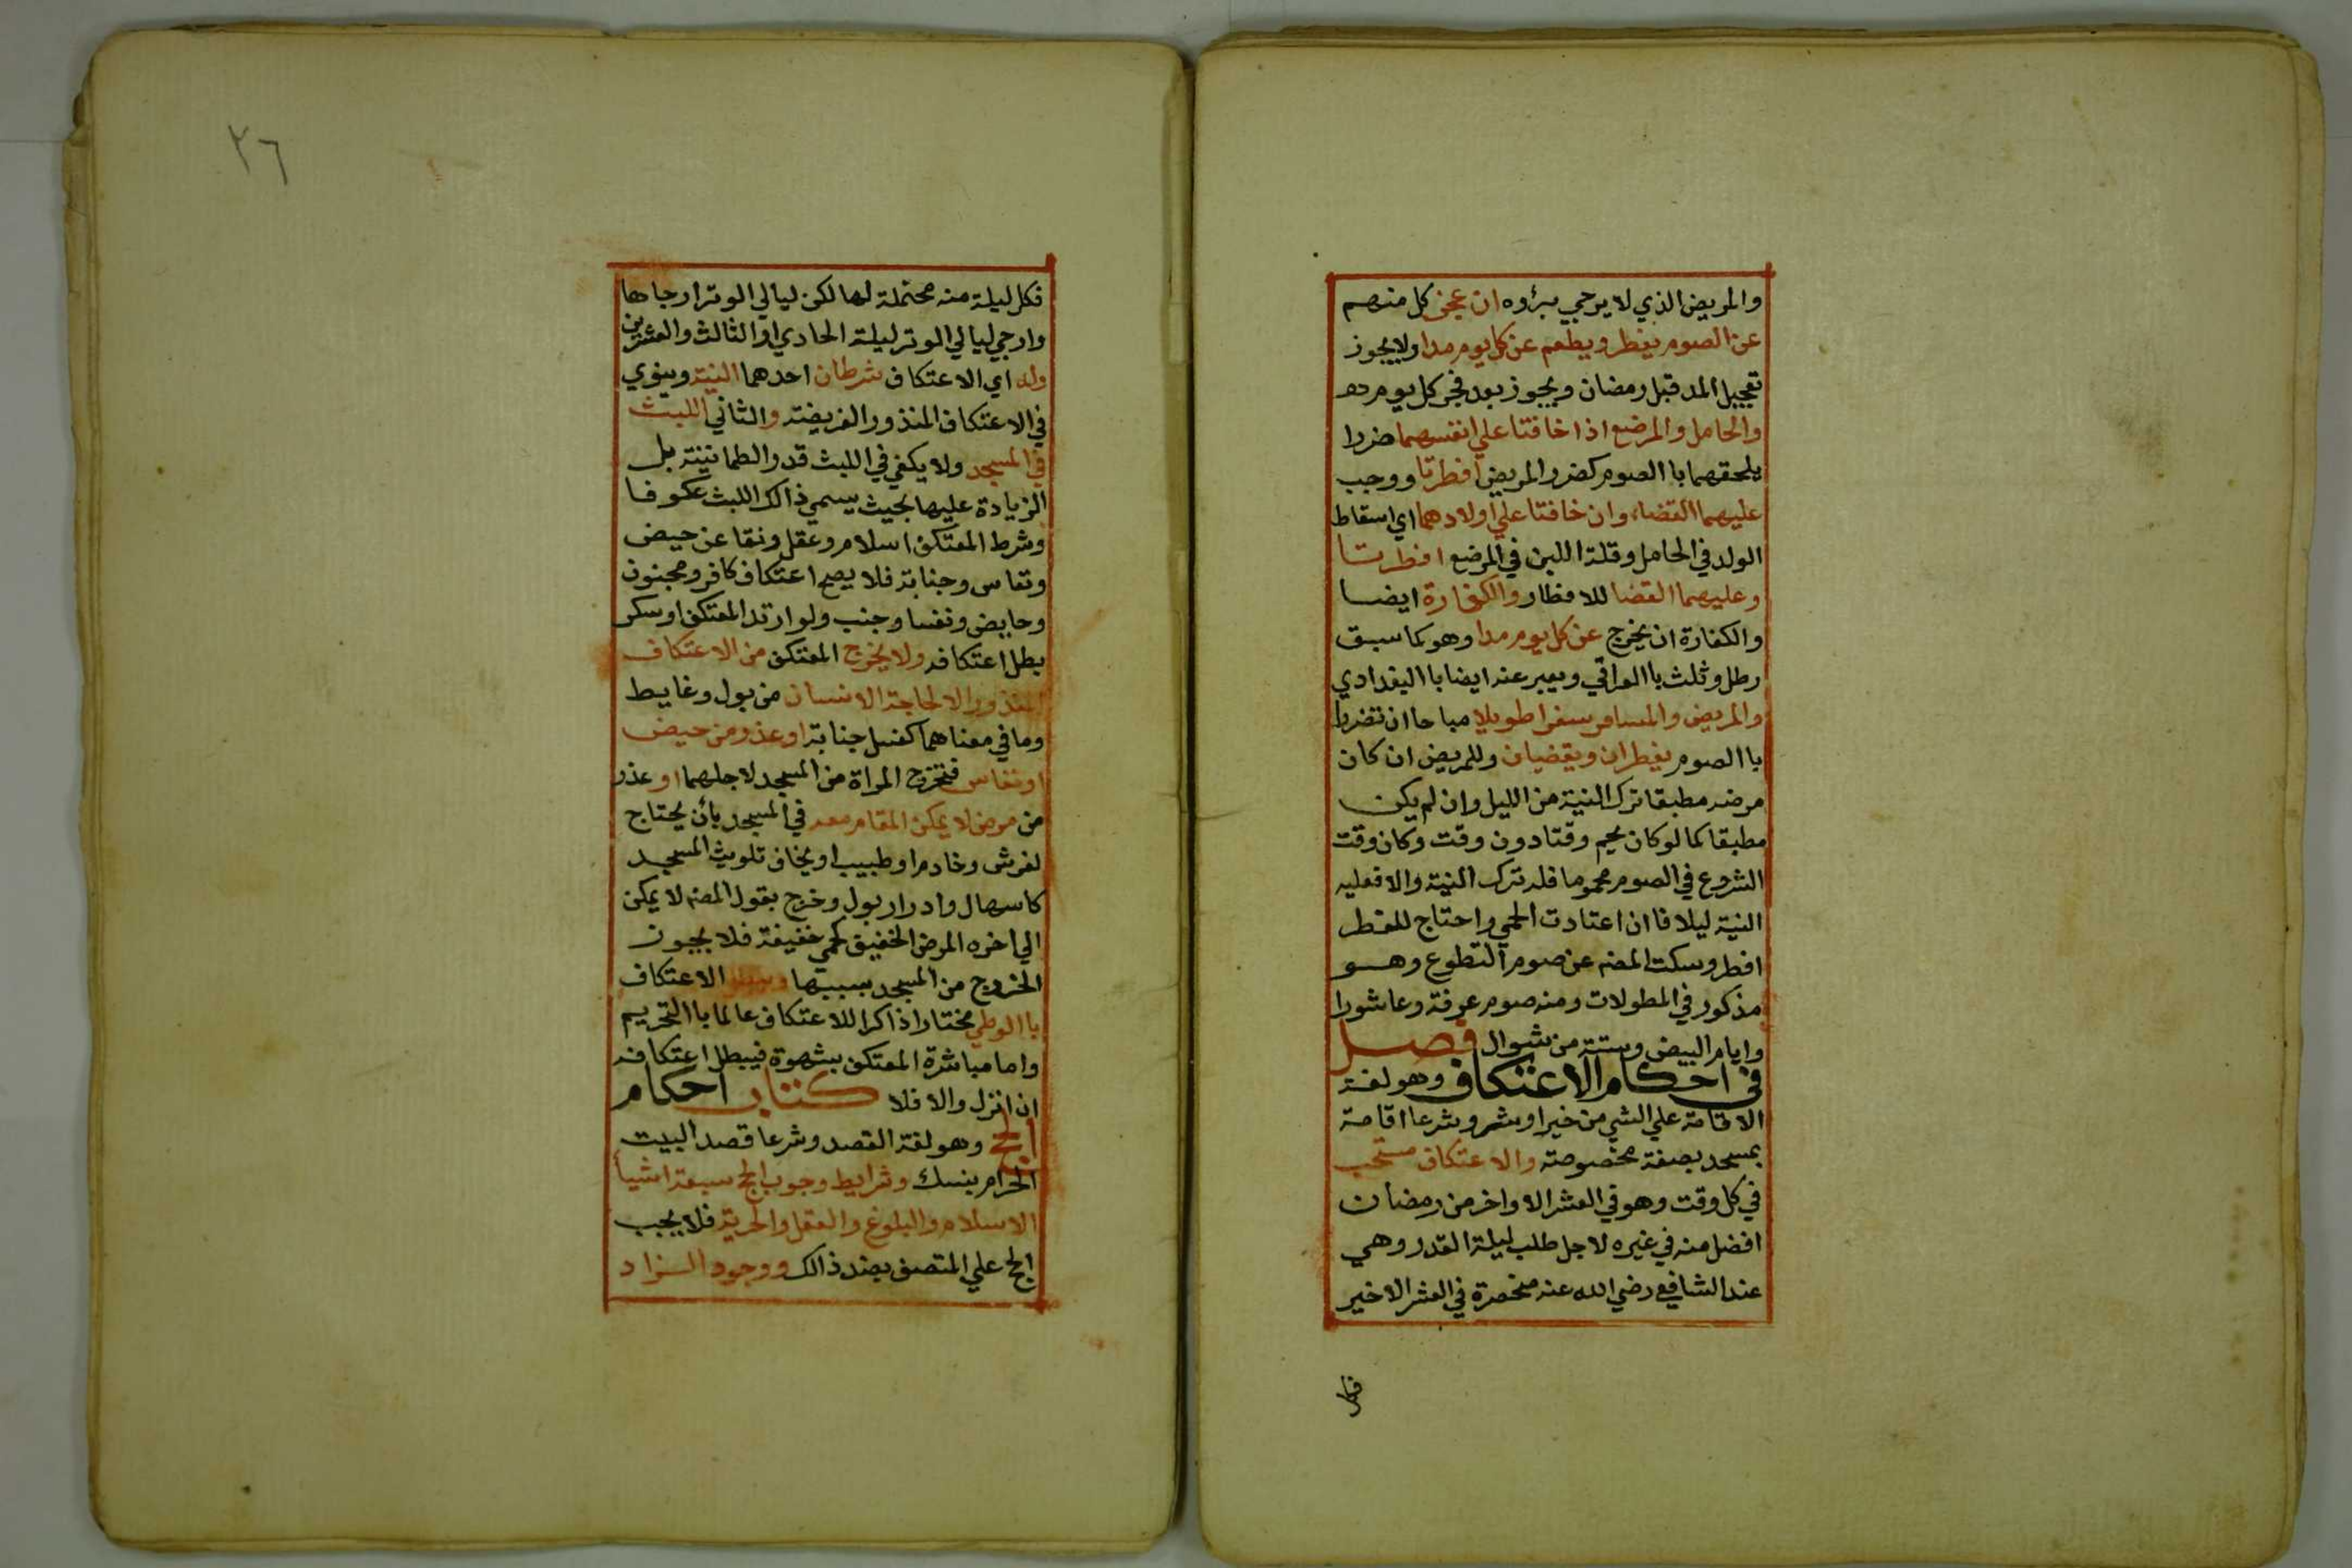 والمريض الذي لا يرجي برؤه ان عجز كل منهم
عن الصوم يفطر ويطعم عن كل يوم مدا ولا يجوز
تعجيل المد قبل رمضان ويجوز بعد فجر كل يوم مد
والحامل والمرضع اذا خافتا علي انفسهما ضررا
يلحقهما باالصوم كضرر المريض افطرتا ووجب
عليهما القضاء وان خافتا علي اولادهما اي اسقاط
الولد في الحامل وقلة اللبن في المرضع افطرتا
وعليهما القضا للافطار والكفارة ايضا
والكفارة ان يخرج عن كل يوم مدا وهو كما سبق
رطل وثلث باالعراقي ويعبر عنه ايضا باالبغدادي
والمريض والمسافر سفرا طويلا مباحا ان تضررا
باالصوم يفطران ويقضيان وللمريض ان كان
مرضه مطبقا ترك النية من الليل وان لم يكن
مطبقا كما لو كان يحم وقتا دون وقت وكان وقت
الشروع في الصوم محموما فله ترك النية والا فعليه
النية ليلا فاان اعتادت الحمي واحتاج للفطر
افطر وسكت المصنف عن صوم التطوع وهو
مذكور في المطولات ومنه صوم عرفة وعاشورا
وايام البيض وستة من شوال فصل
في احكام الاعتكاف وهو لغة
الاقامة علي الشي من خير او شر وشرعا اقامة
بمسجد بصفة مخصوصة والاعتكاف مستحب
في كل وقت وهو في العشر الاواخر من رمضان
افضل منه في غيره لاجل طلب ليلة القدر وهي
عند الشافعي رضي الله عنه منحصرة في العشر الاخير
فكل
٢٦
فكل ليلة منه محتملة لها لكن ليالي الوتر ارجاها
وارجي ليالي الوتر ليلة الحادي او الثالث والعشرين
وله اي الاعتكاف شرطان احدهما النية وينوي
في الاعتكاف المنذور الفريضة والثاني اللبث
في المسجد ولا يكفي في اللبث قدر الطمانينة بل
الزيادة عليها بحيث يسمي ذالك اللبث عكوفا
وشرط المعتكف اسلام وعقل ونقا عن حيض
ونفاس وجنابة فلا يصح اعتكاف كافر ومجنون
وحايض ونفسا وجنب ولو ارتد المعتكف او سكر
بطل اعتكافه ولا يخرج المعتكف من الاعتكاف
المنذور الا لحاجة الانسان من بول وغايط
وما في معناهما كغسل جنابة او عذر من حيض
او نفاس فتخرج المراة من المسجد لاجلهما او عذر
من مرض لا يمكن المقام معه في المسجد بأن يحتاج
لفرش وخادم او طبيب او يخاف تلويث المسجد
كاسهال وادرار بول وخرج بقول المصنف لا يمكن
الي اخره المرض الخفيف كحمي خفيفة فلا يجوز
الخروج من المسجد بسببها ويبطل الاعتكاف
باالوطي مختارا ذاكرا للاعتكاف عالما باالتحريم
واما مباشرة المعتكف بشهوة فيبطل اعتكافه
ان انزل والا فلا كتاب احكام
الحج وهو لغة القصد وشرعا قصد البيت
الحرام بنسك وشرايط وجوب الحج سبعة اشيا
الاسلام والبلوغ والعقل والحرية فلا يجب
الحج علي المتصف بضد ذالك ووجود الزاد